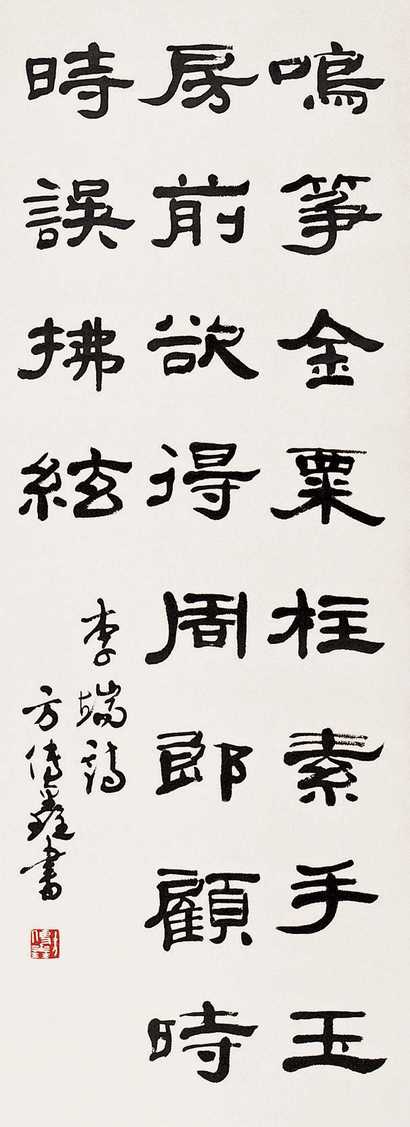 鳴筝金粟柱素手玉
房前欲得周郎顧時
時誤拂絃
李端詩
方傳鑫書